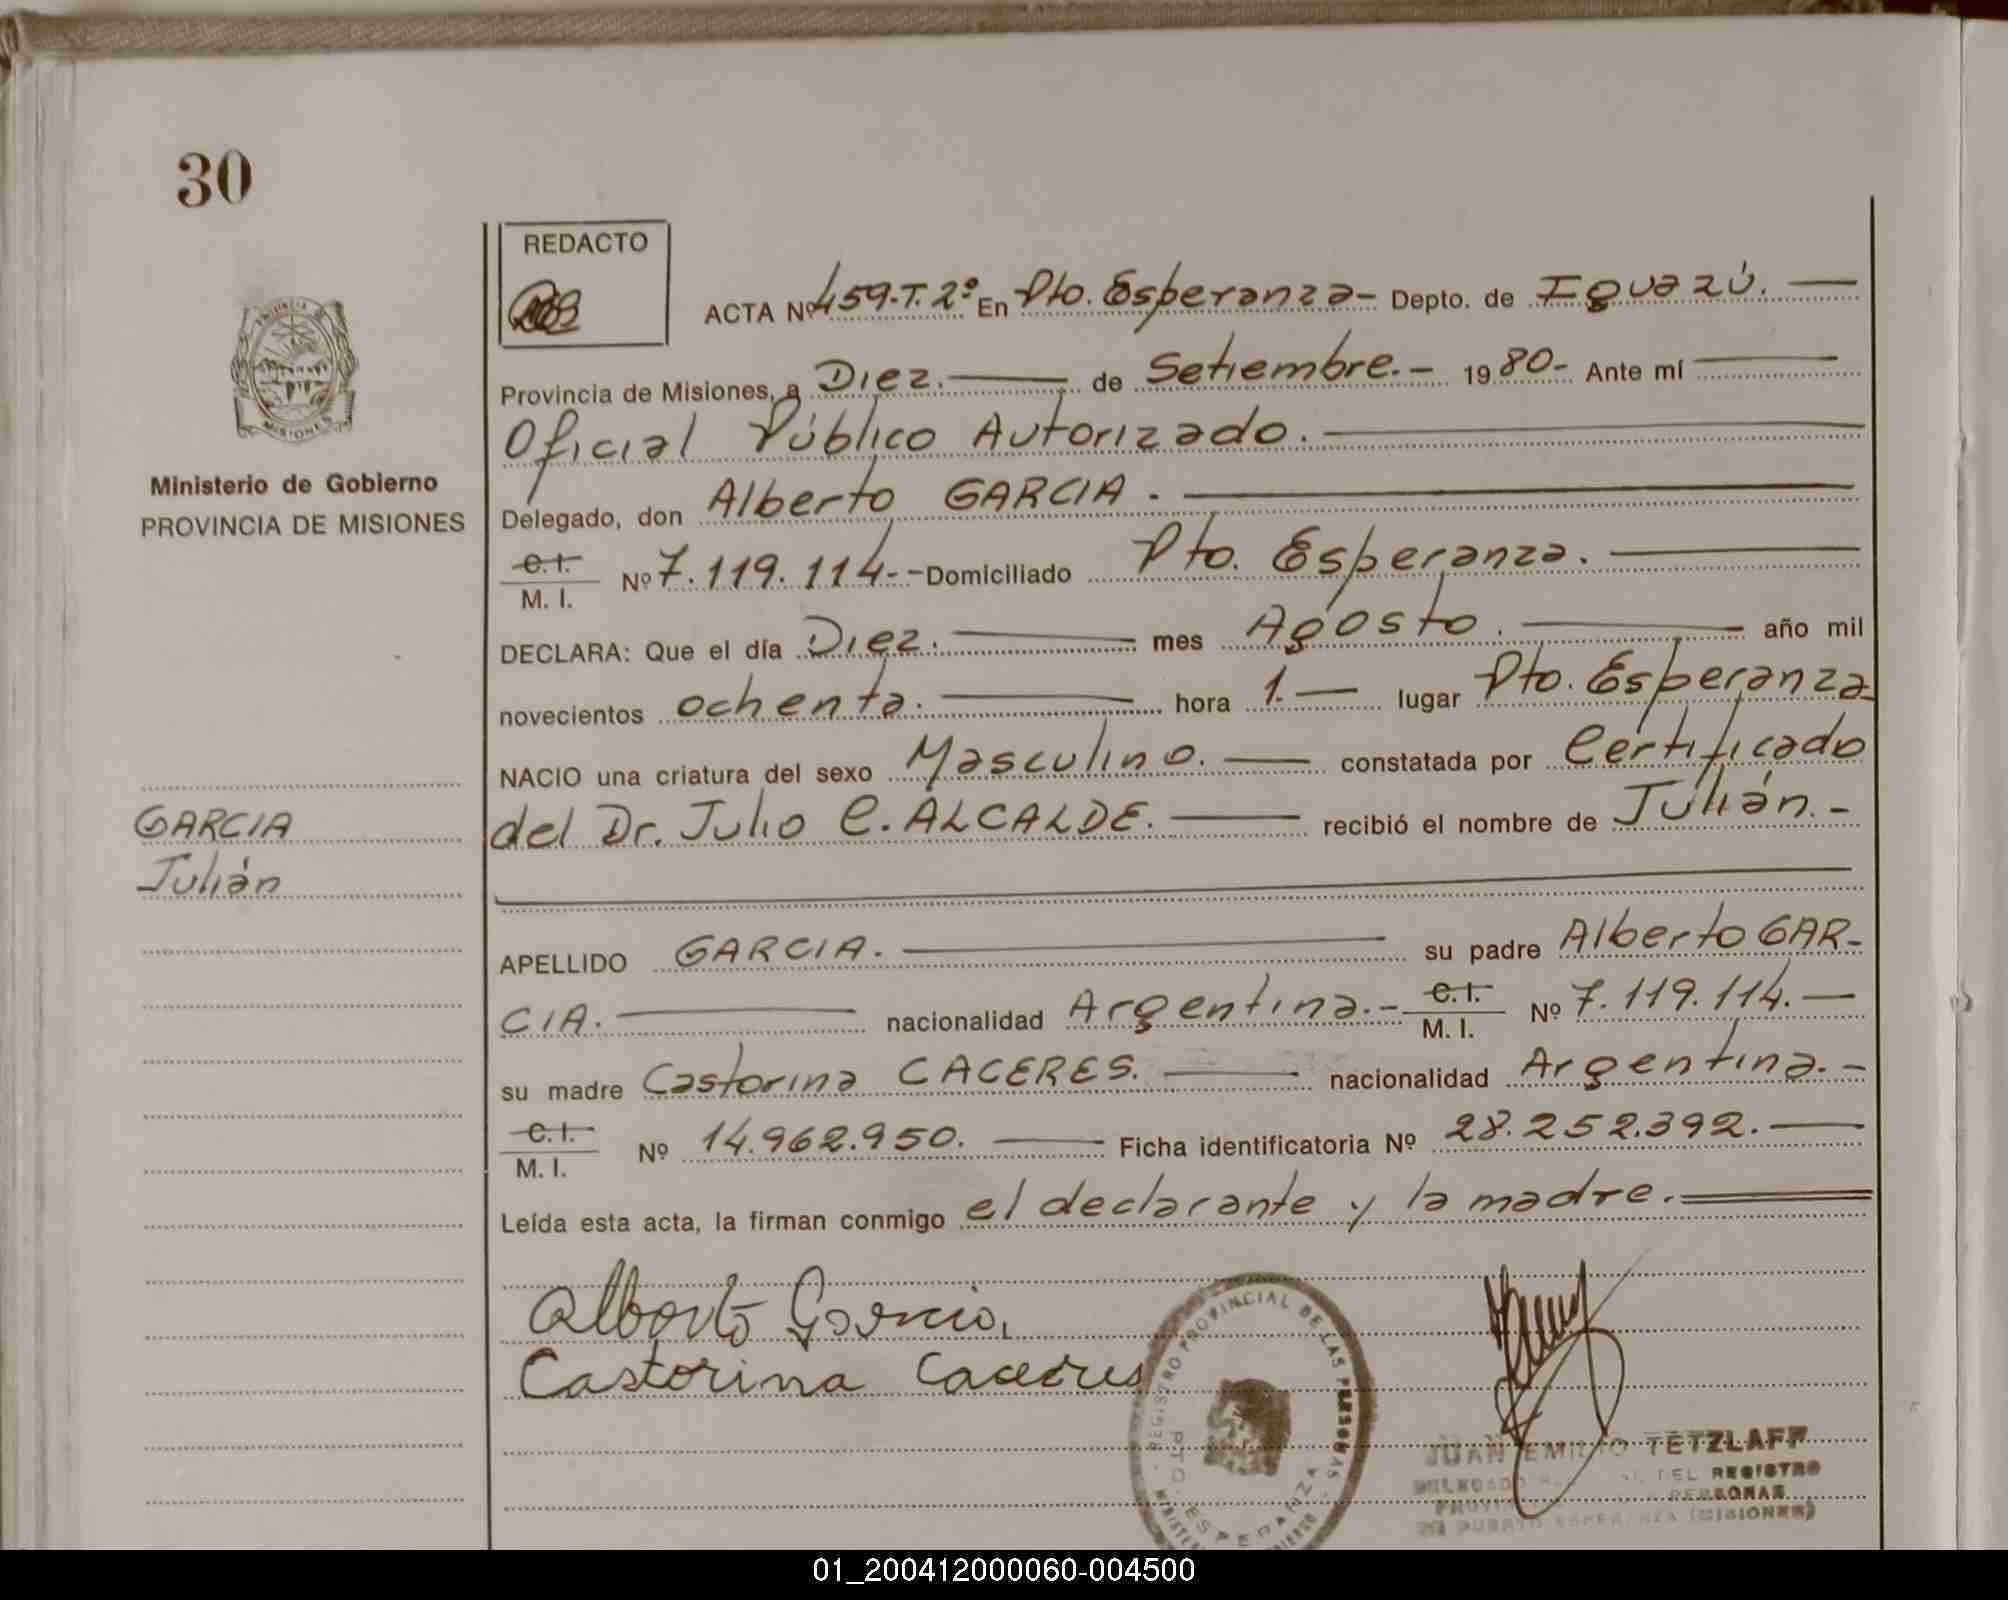 30
REDACTO
ACTA Nº 459-T.2º En Pto. Esperanza- Depto. de Iguazú.
Provincia de Misiones, a Diez. de Setiembre.- 1980- Ante mí
Oficial Público Autorizado.
Delegado, don Alberto GARCIA.
C. I.
M. I. Nº 7.119.114.- Domiciliado Pto. Esperanza.
DECLARA: Que el día Diez. mes Agosto. año mil
novecientos ochenta. hora 1. lugar Pto. Esperanza
NACIO una criatura del sexo Masculino. constatada por Certificado
del Dr. Julio C. ALCALDE. recibió el nombre de Julián.-
APELLIDO GARCIA. su padre Alberto GAR-
CIA. nacionalidad Argentina.- C. I. M. I. Nº 7.119.114.
su madre Castorina CACERES. nacionalidad Argentina.-
C. I.
M. I. Nº 14.962.950. Ficha identificatoria Nº 28.252.392.
Leída esta acta, la firman conmigo el declarante y la madre.
Alberto Garcia.
Castorina Caceres
PROVINCIA
MISIONES
Ministerio de Gobierno
PROVINCIA DE MISIONES
GARCIA
Julián
REGISTRO PROVINCIAL DE LAS PERSONAS
PTO. ESPERANZA
JUAN EMILIO TETZLAFF
DELEGADO DEL REGISTRO
PERSONAS
PUERTO ESPERANZA (MISIONES)
01_200412000060-004500